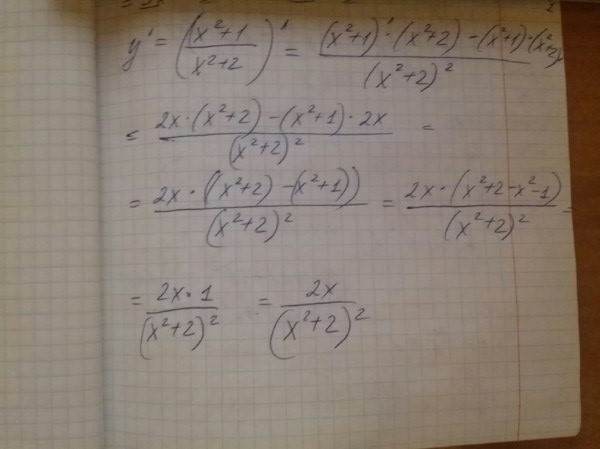 y' = ((x²+1)/(x²+2))' = ((x²+1)'·(x²+2) - (x²+1)·(x²+2))/(x²+2)²
= (2x·(x²+2) - (x²+1)·2x)/(x²+2)² =
= (2x·((x²+2) - (x²+1)))/(x²+2)² = (2x·(x²+2-x²-1))/(x²+2)² =
= (2x·1)/(x²+2)² = 2x/(x²+2)²